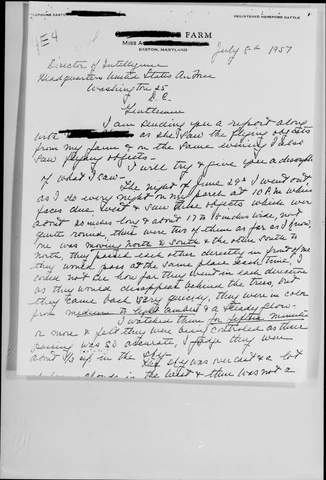 REGISTERED HEREFORD CATTLE
FARM
MISS A
EASTON, MARYLAND
1E4
July 8th 1957
Director of Intelligence
Headquarters United States Air Force
Washington 25
D.C.
Gentlemen
I am sending you a report along
as she saw the flying objects
from my farm & on the same evening I also
saw flying objects -
I will try & give you a
of what I saw -
The night of June 29th I went out
as I do every night on my porch at 10 P.M. which
faces due West & saw these objects which were
about 20 inches long & about 17 to 18 inches wide, not
quite round, there were two of them as far as I know,
one was moving North to South & the other South to
North, they passed each other directly in front of me
they would pass at the same place each time, I
could not see how far they went in each direction
as they would disappear behind the trees, but
they came back very quickly, they were in color
from medium to light amber & a steady glow -
I watched them for fifteen minutes
or more & felt they were being controlled as their
was so accurate, I judge they were
about 1/3 up in the sky -
The sky was over cast & a lot
clouds in the West & there was not a